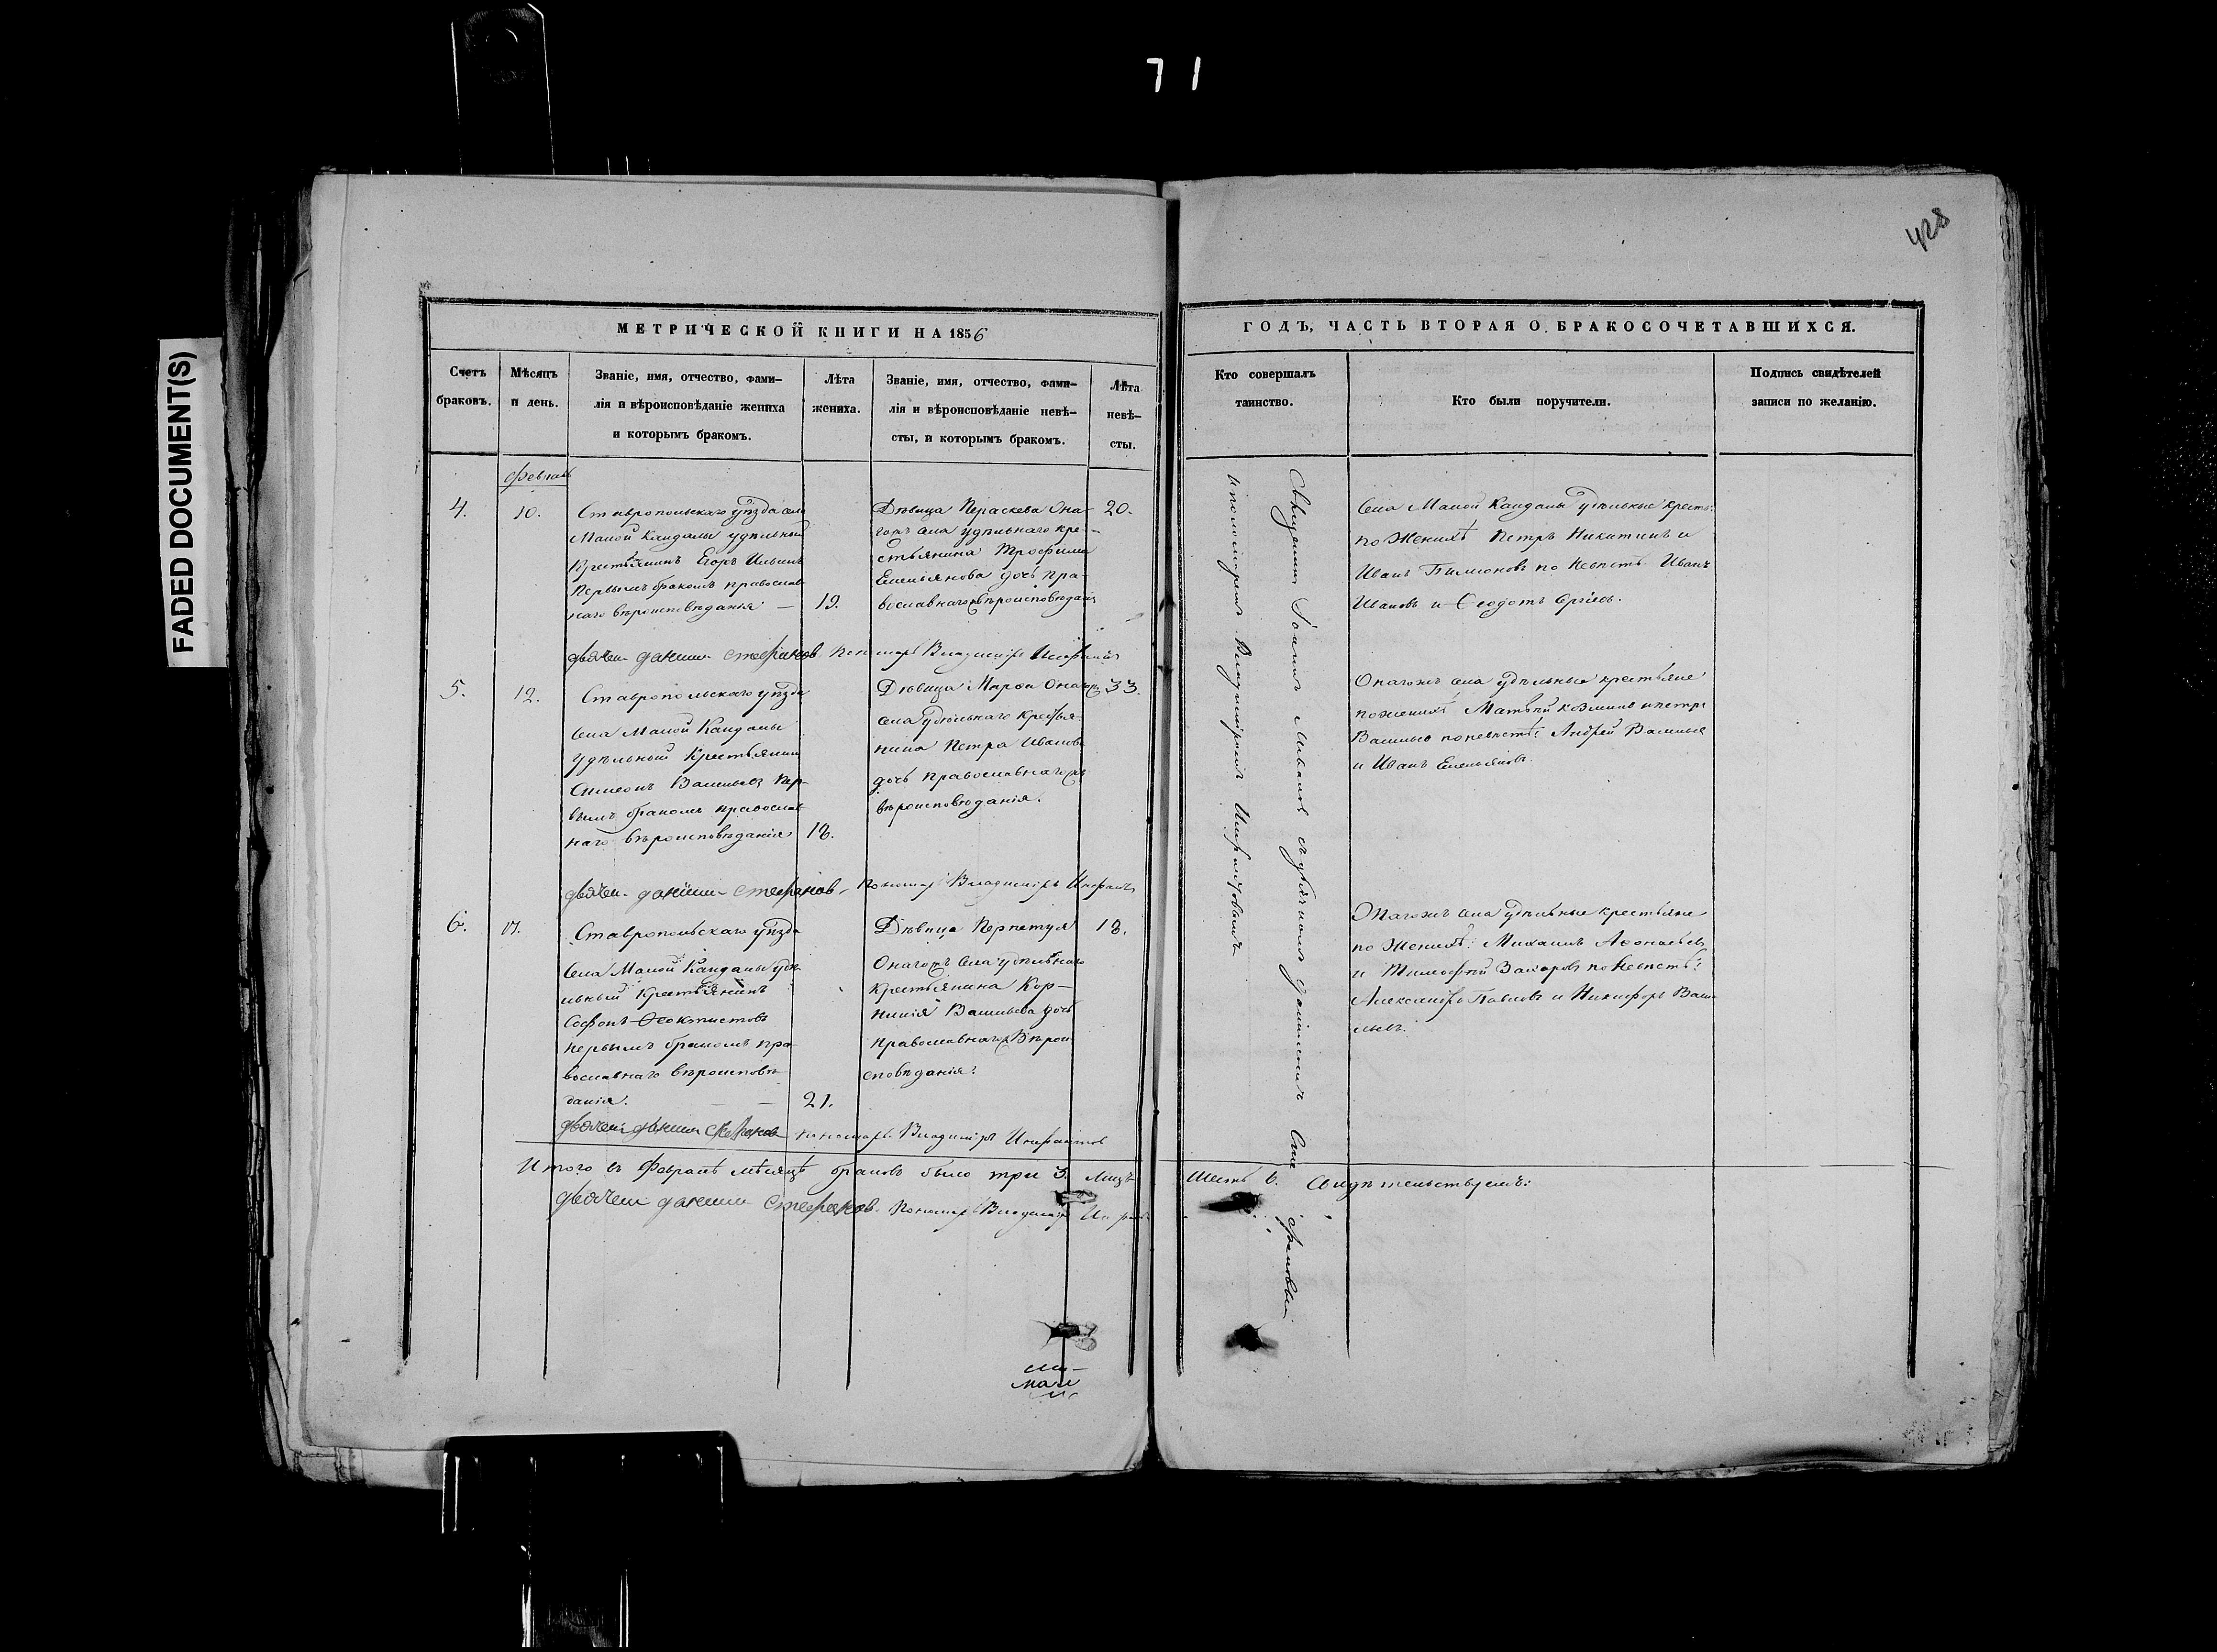 71
FADED DOCUMENT(S)
428
МЕТРИЧЕСКОЙ КНИГИ НА 1856
ГОДЪ, ЧАСТЬ ВТОРАЯ О БРАКОСОЧЕТАВШИХСЯ.
Счетъ
браковъ.
Мѣсяцъ
и день.
Званіе, имя, отчество, фами-
лія и вѣроисповѣданіе жениха
и которымъ бракомъ.
Лѣта
жениха.
Званіе, имя, отчество, фами-
лія и вѣроисповѣданіе невѣ-
сты, и которымъ бракомъ.
Лѣта
невѣ-
сты.
Кто совершалъ
таинство.
Кто были поручители.
Подпись свидѣтелей
записи по желанію.
4.
10.
Ставропольскаго уѣзда села
Малой Кандалы удѣльный
Крестьянинъ Егоръ Ильинъ
первымъ бракомъ православ
наго вѣроисповѣданія —
19.
Дѣвица Параскева Она-
гожъ села удѣльнаго кре-
стьянина Трофима
Емельянова дочь пра-
вославнаго вѣроисповѣданія
20.
Села Малой Кандалы удѣльные крест:
по Женихѣ Петръ Никитинъ и
Иванъ Филионовъ по невѣстѣ Иванъ
Ивановъ и Ѳеодотъ Сергѣевъ.
дьячекъ данiилъ стефановъ Пономарь Владимiръ
5.
12.
Ставропольскаго уѣзда
Села Малой Кандалы
удѣльный Крестьянинъ
Симеонъ Васильевъ пер-
вымъ бракомъ православ
наго вѣроисповѣданія
18.
Дѣвица Марѳа Онагожъ
села удѣльнаго крестья-
нина Петра Иванова
дочь православнаго
вѣроисповѣданія.
33.
Онагожъ села удѣльные крестьяне
по женихѣ Матвѣй Козминъ и Петръ
Васильевъ по невѣстѣ: Андрей Васильевъ
и Иванъ Емельяновъ.
дьячекъ данiилъ стефановъ, Пономарь Владимiръ
6.
17.
Ставропольскаго уѣзда
Села Малой Кандалы удѣ-
льный Крестьянинъ
Софонъ Ѳеоктистовъ
первымъ бракомъ пра-
вославнаго вѣроисповѣ-
данія.
21.
Дѣвица Перпетуя
Онагожъ села удѣльнаго
крестьянина Кор-
нилія Васильева дочь
православнаго Вѣрои-
сповѣданія.
18.
Онагожъ села удѣльные крестьяне
по Женихѣ: Михаилъ Леонтьевъ
и Тимофей Захаровъ по Невѣстѣ:
Александръ Павловъ и Никифоръ Васи-
льевъ.
дьячекъ данiилъ стефановъ пономарь Владимiръ
Священникъ Iоаннъ
Итого въ Февралѣ мѣсяцѣ браковъ было три 3. Лицъ шесть 6. Свидѣтельствуемъ:
дьячекъ данiилъ стефановъ. Пономарь Владимiръ